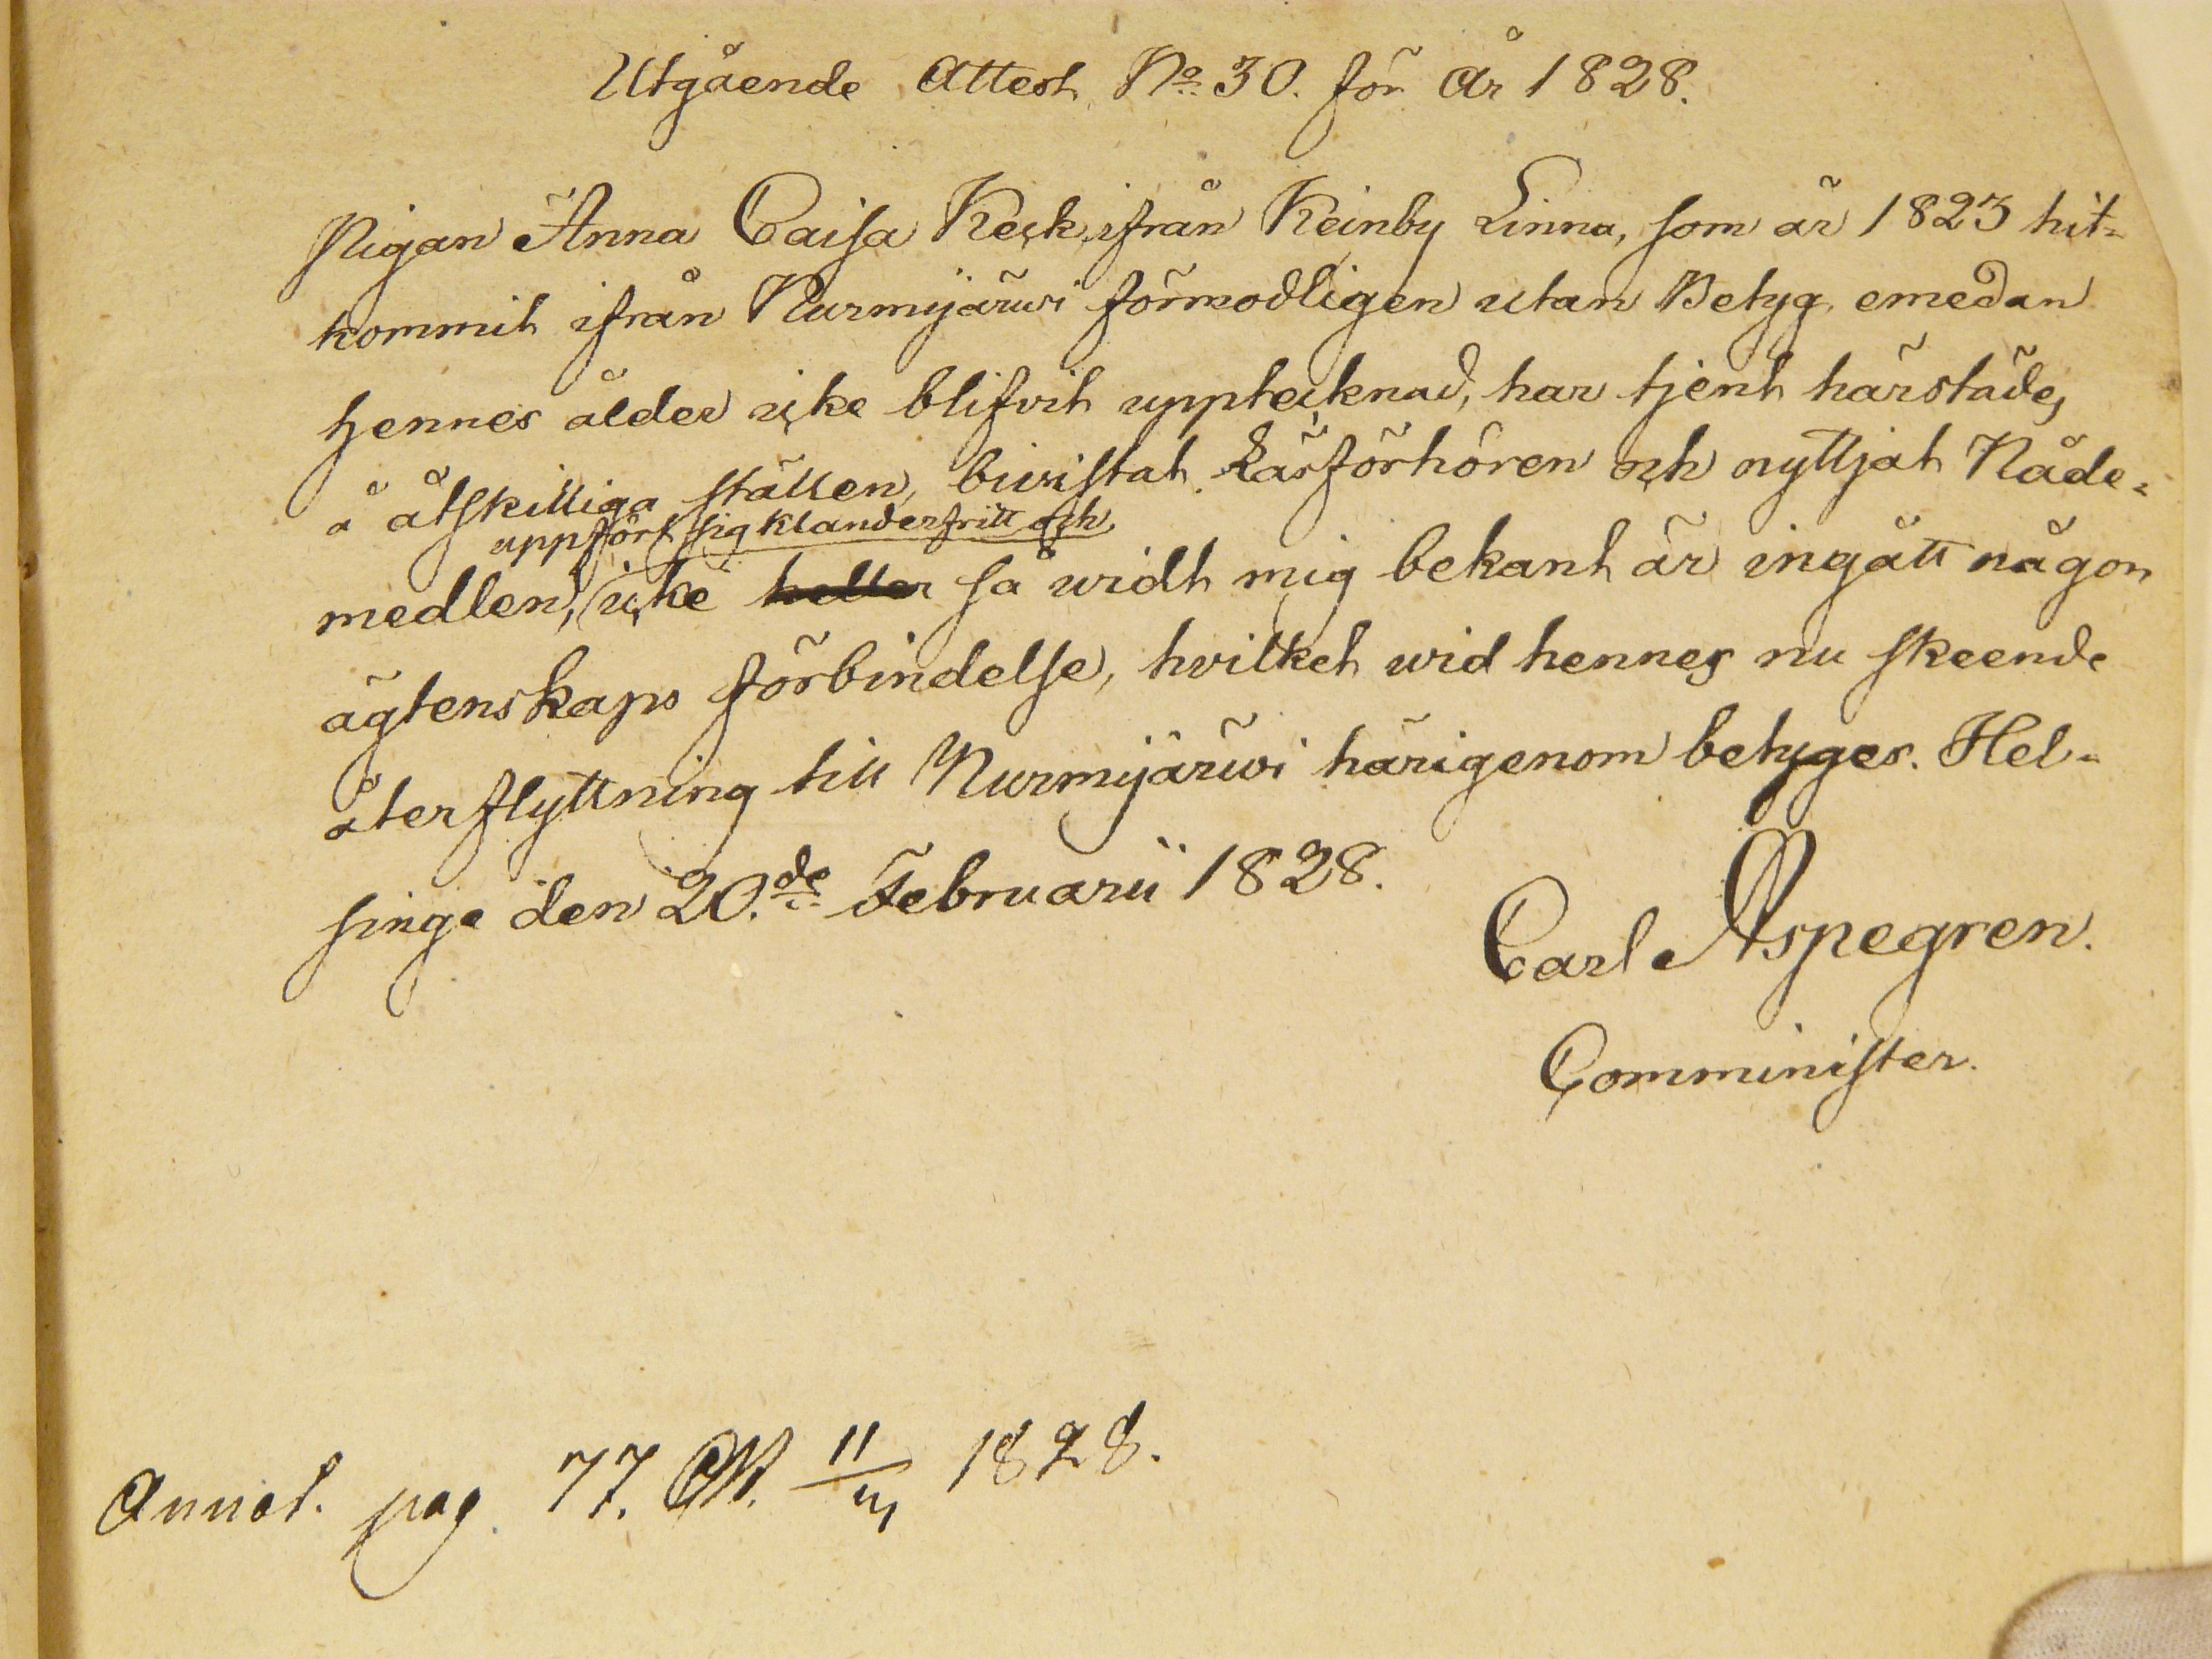 Utgående Attest No. 30. för år 1828.
Pigan Anna Caisa Keck, ifrån Keinby Linna, som år 1823 hit-
kommit ifrån Nurmijärwi förmodligen utan Betyg, emedan
hennes ålder icke blifvit upptecknad, har tjent härstädes
å åtskilliga ställen, biwistat Läsförhören och nyttjat Nåde-
uppfört sig klanderfritt och
medlen, icke heller så widt mig bekant är ingått någon
ägtenskaps förbindelse, hvilket wid hennes nu skeende
återflyttning till Nurmijärwi härigenom betyges. Hel-
singe den 20.de Februarii 1828.
Carl Aspegren.
Comminister.
Annot. pag. 77. 11/3 1828.